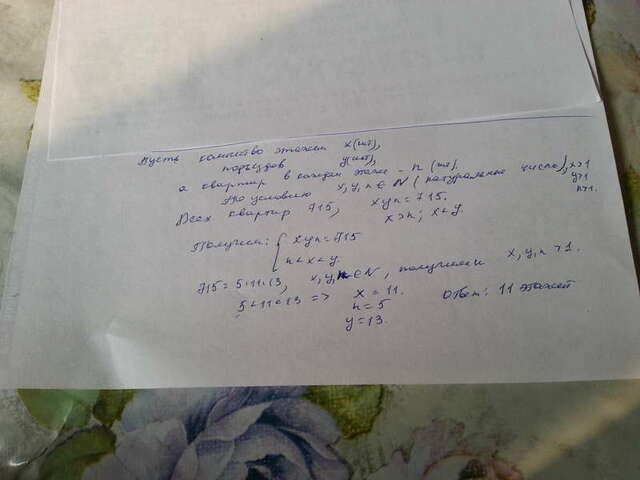 Пусть количество этажей x (шт),
подъездов y (шт),
а квартир в каждом этаже - n (шт).
По условию x, y, n ∈ N (натуральные числа), x>1
y>1
n>1.
Всех квартир 715, xyn = 715.
x > n; x < y.
Получим: { xyn = 715
n < x < y.
715 = 5·11·13, x, y, n ∈ N, получим x, y, n > 1.
5 < 11 < 13 => x = 11. Ответ: 11 этажей
n = 5
y = 13.